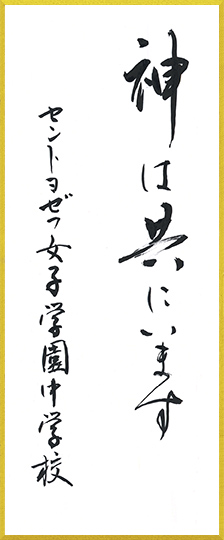 神は共にいます
セントヨゼフ女子学園中学校